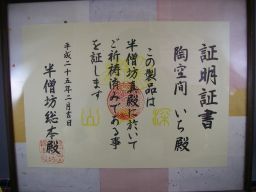 証明証書
陶空間 いち殿
この製品は
半僧坊真殿に於いて
ご祈祷済みである事
を証します
平成二十五年二月吉日
半僧坊総本殿